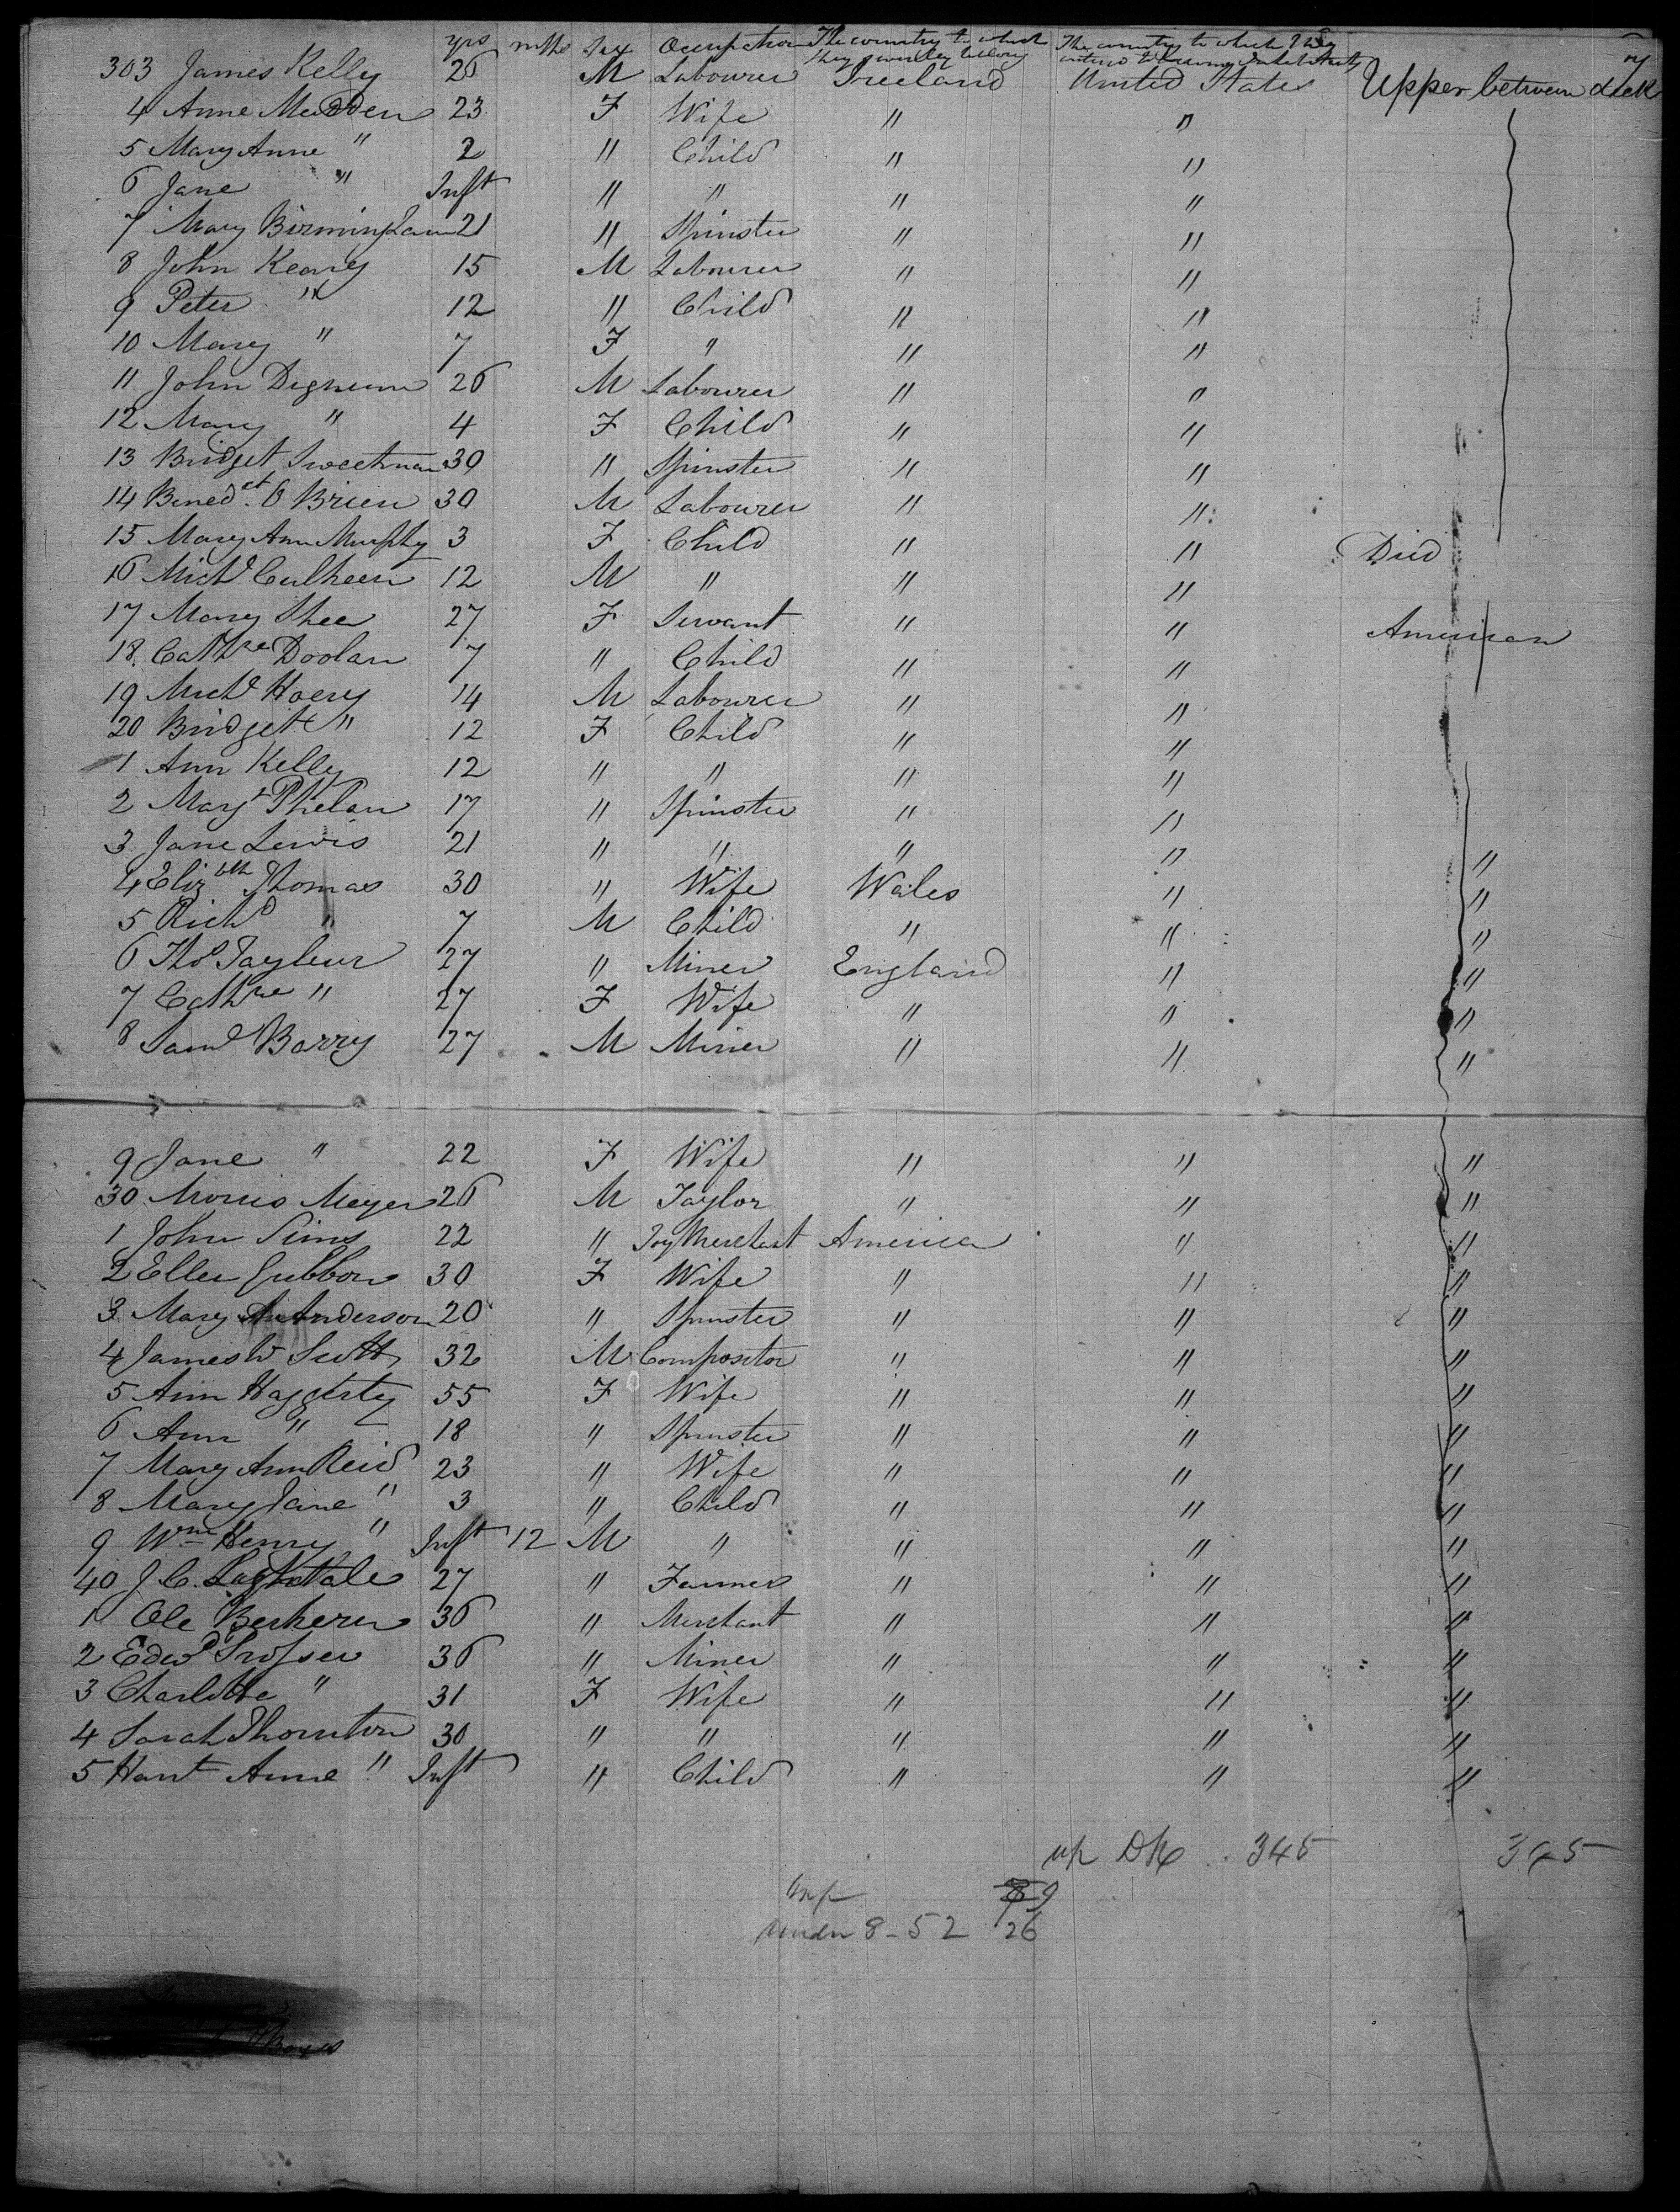 yrs mths Sex Occupation The country to which they severally belong The country to which they intend to become inhabitants
303 James Kelly 26 M Labourer Ireland United States Upper between deck
4 Anne Madden 23 F Wife " "
5 Mary Anne " 2 " Child " "
6 Jane " Inft " " " "
7 Mary Birmingham 21 " Spinster " "
8 John Keary 15 M Labourer " "
9 Peter " 12 " Child " "
10 Mary " 7 F " " "
11 John Dignum 26 M Labourer " "
12 Mary " 4 F Child " "
13 Bridget Sweetman 30 " Spinster " "
14 Bened.ct O Brien 30 M Labourer " "
15 Mary Ann Murphy 3 F Child " " Died
16 Michl Culheen 12 M " " "
17 Mary Shee 27 F Servant " " American
18. Cathne Doolan 7 " Child " "
19 Michl Hoery 14 M Labourer " "
20 Bridget " 12 F Child " "
1 Ann Kelly 12 " " " "
2 Margt Phelan 17 " Spinster " "
3 Jane Lewis 21 " " " " "
4 Elizbth Thomas 30 " Wife Wales " "
5 Richd " 7 M Child " " "
6 Thos Tayleur 27 " Miner England " "
7 Cathne " 27 F Wife " " "
8 Saml Barry 27 M Miner " " "
9 Jane " 22 F Wife " " "
30 Morris Meyer 26 M Taylor " " "
1 John Sims 22 " Toy Merchant America " "
2 Ellen Gubbons 30 F Wife " " "
3 Mary An Anderson 20 " Spinster " " "
4 James W Scott 32 M Compositor " " "
5 Ann Haggerty 55 F Wife " " "
6 Ann " 18 " Spinster " " "
7 Mary Ann Reid 23 " Wife " " "
8 Mary Jane " 3 " Child " " "
9 Wm Henry " Inft 12 M " " " "
40 J. C. 27 " Farmer " " "
1 Ole 36 " Merchant " " "
2 Edwd Prosser 36 " Miner " " "
3 Charlotte " 31 F Wife " " "
4 Sarah Thornton 30 " " " " "
5 Hant Anne " Inft " Child " " "
up Dk . 345 345
Inf 9
under 8 - 52 26